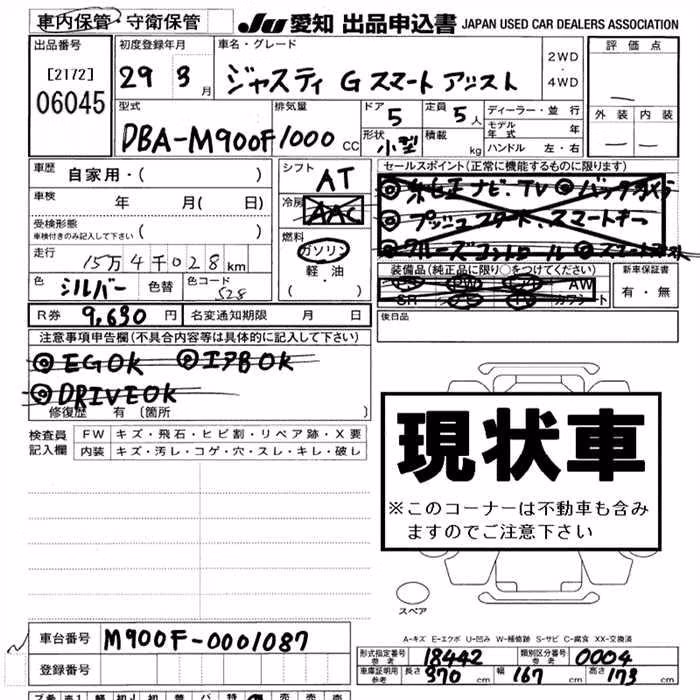 車内保管・守衛保管 JU 愛知 出品申込書 JAPAN USED CAR DEALERS ASSOCIATION
出品番号 初度登録年月 車名・グレード 評価点
[2172] 29 3月 ジャスティ G スマートアシスト 2WD・4WD
06045
型式 排気量 ドア 定員 ディーラー・並行 外装 内装
DBA-M900F 1000cc 5 5人 モデル年式 年
形状 小型 積載 kg ハンドル 左・右
車歴 自家用・( ) シフト AT セールスポイント(正常に機能するものに限ります)
車検 年 月( 日) 冷房 AAC ◎純正ナビ、TV ◎バックカメラ
受検形態 車検付きのみ記入して下さい ( ) ◎プッシュスタート、スマートキー
燃料 ガソリン・軽油・( ) ◎クルーズコントロール
走行 15万4千028km
色 シルバー 色替 色コード S28
装備品(純正品に限り○をつけてください) 新車保証書
PS PW エアB AW 有・無
SR ナビ TV カワシート
R券 9,630円 名変通知期限 月 日 後日品
注意事項申告欄(不具合内容等は具体的に記入して下さい)
◎EGOK ◎エアBOK
◎DRIVEOK
修復歴 有 〔箇所 〕
検査員記入欄 FW キズ・飛石・ヒビ割・リペア跡・X要
内装 キズ・汚レ・コゲ・穴・スレ・キレ・破レ
現状車
※このコーナーは不動車も含み
ますのでご注意下さい
スペア
A-キズ E-エクボ U-凹み W-補修跡 S-サビ C-腐食 XX-交換済
車台番号 M900F-0001087
登録番号
形式指定番号 参考 18442 類別区分番号 参考 0004
車庫証明用 参考 長さ 370cm 幅 167cm 高さ 173cm